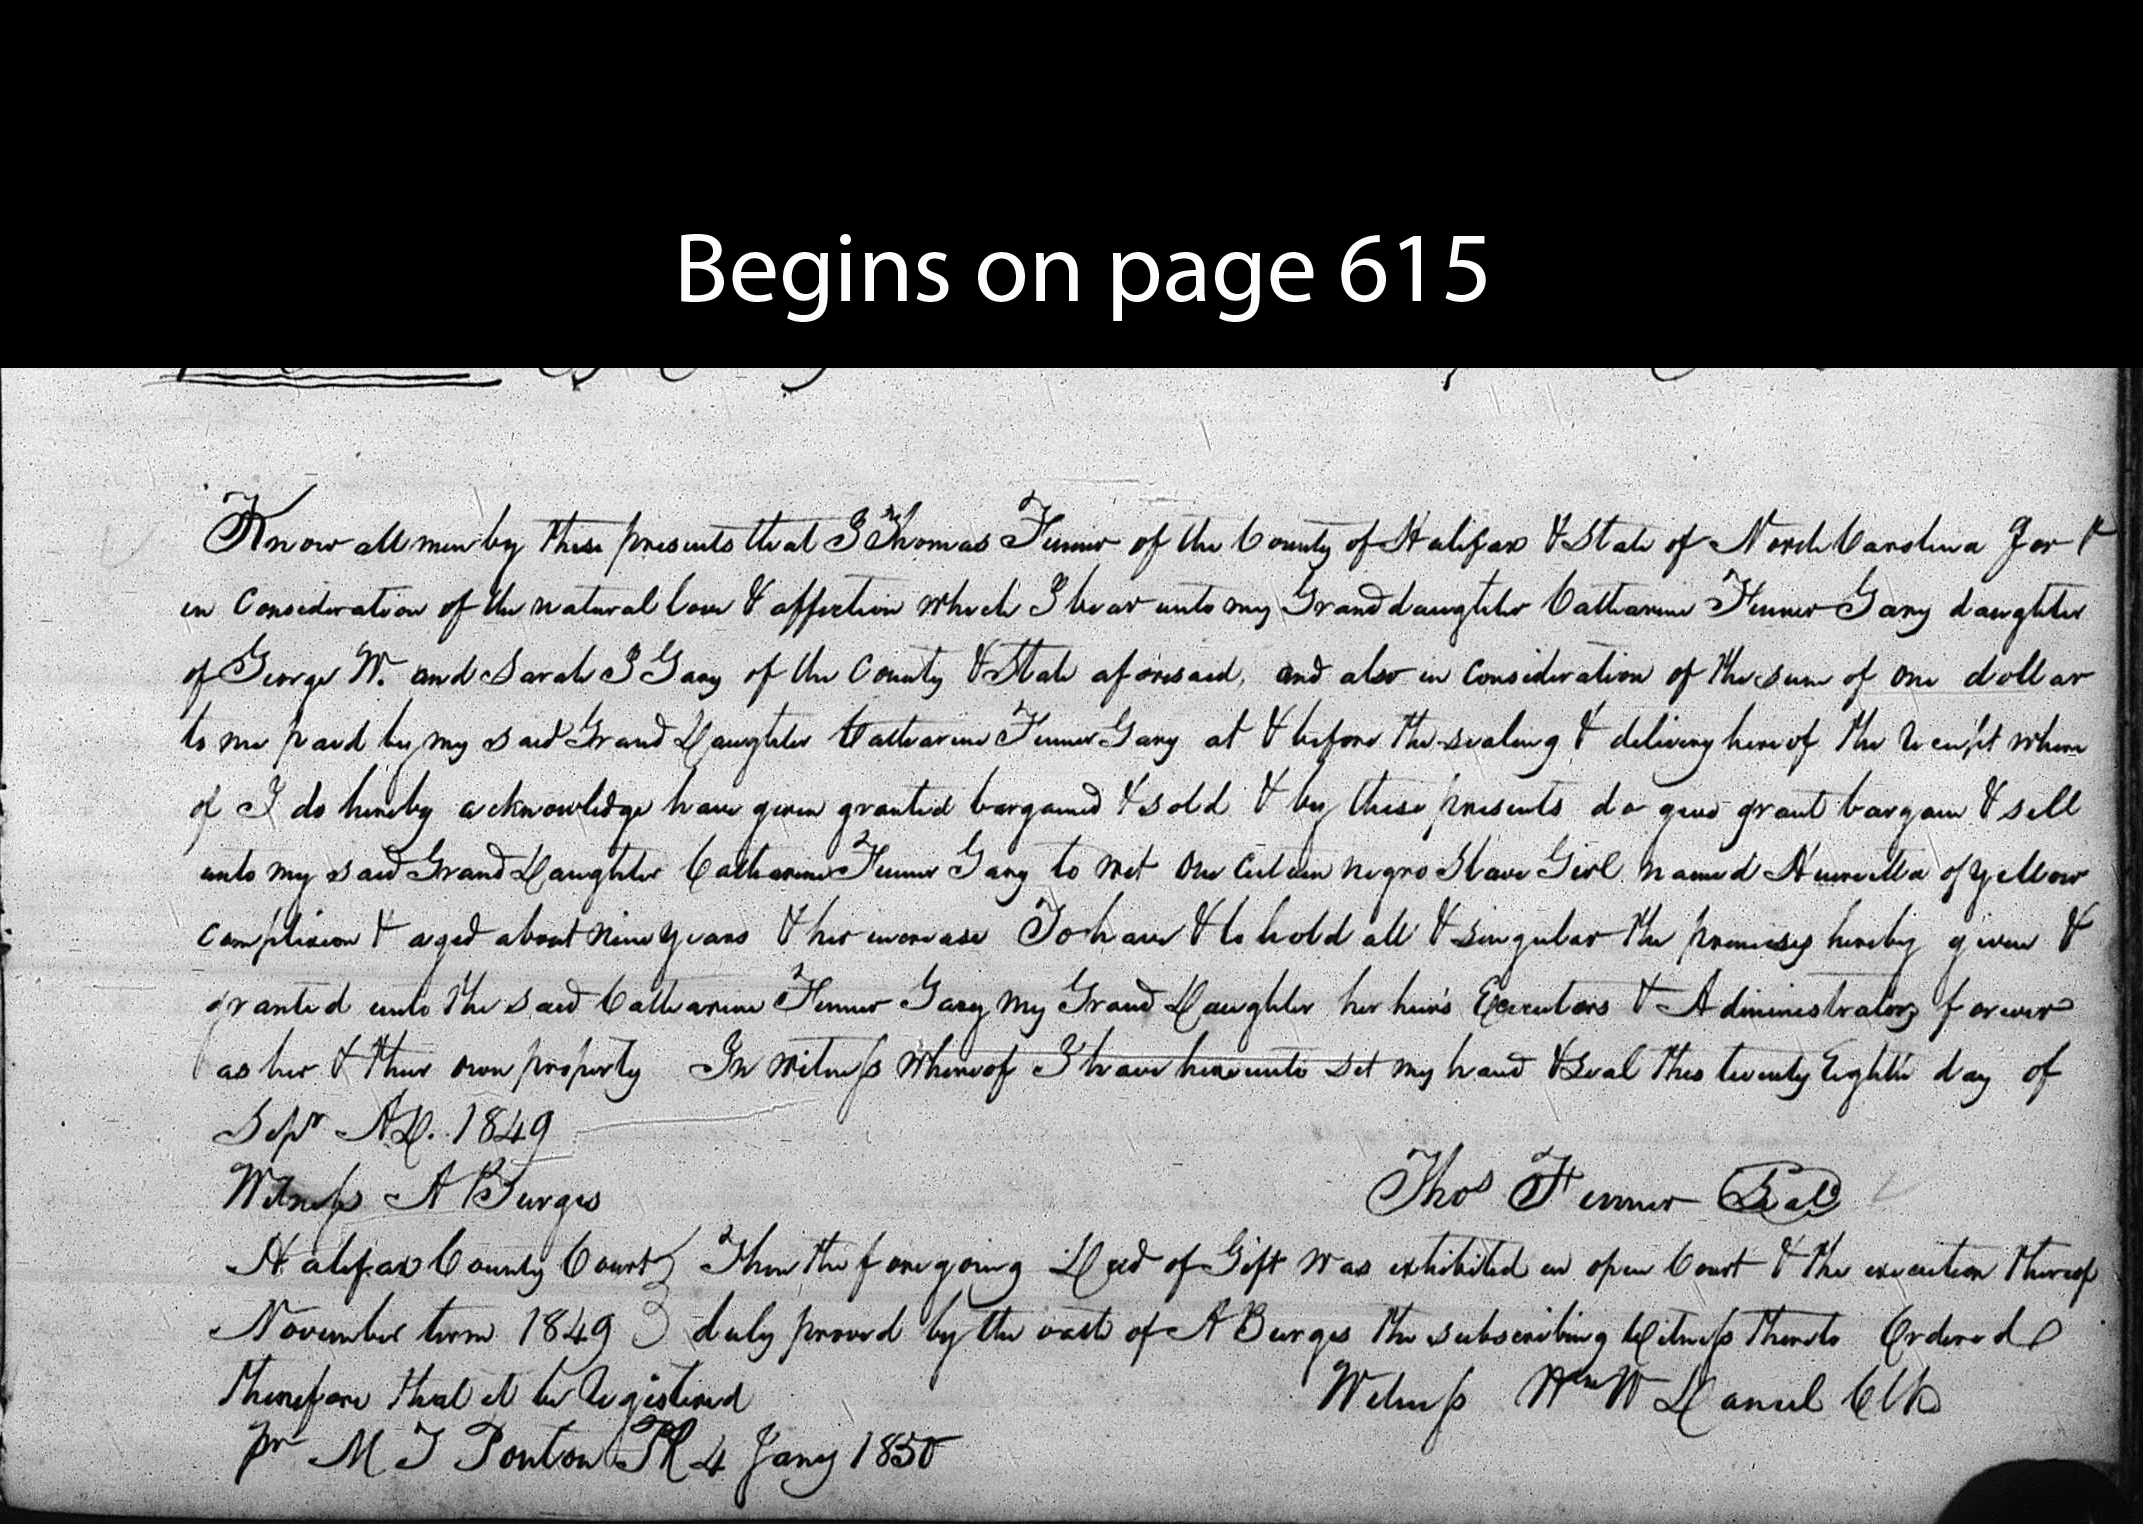 Begins on page 615
Know all men by these presents that I Thomas Fenner of the County of Halifax & State of North Carolina for &
in Consideration of the natural love & affection which I bear unto my Granddaughter Catharine Fenner Gary daughter
of George W. and Sarah I Gary of the County & State aforesaid, and also in Consideration of the sum of one dollar
to me paid by my said Grand Daughter Catharine Fenner Gary at & before the sealing & delivery hereof the receipt where
of I do hereby acknowledge have given granted bargained & sold & by these presents do give grant bargain & sell
unto my said Grand Daughter Catharine Fenner Gary to wit One certain negro Slave Girl named Henrietta of yellow
Complexion & aged about nine years & her increase To have & to hold all & singular the premises hereby given &
granted unto the said Catharine Fenner Gary my Grand Daughter her heirs Executors & Administrators forever
as her & their own property In witness whereof I have hereunto set my hand & seal this twenty Eighth day of
Sepr AD. 1849
Witness A Burges Thos Fenner Seal
Halifax County Court Then the foregoing Deed of Gift was exhibited in open Court & the execution thereof
November term 1849 duly proved by the oath of A Burges the subscribing Witness thereto Ordered
therefore that it be Registered Witness Wm W Daniel Clk
pr M T Ponton PR 4 Jany 1850